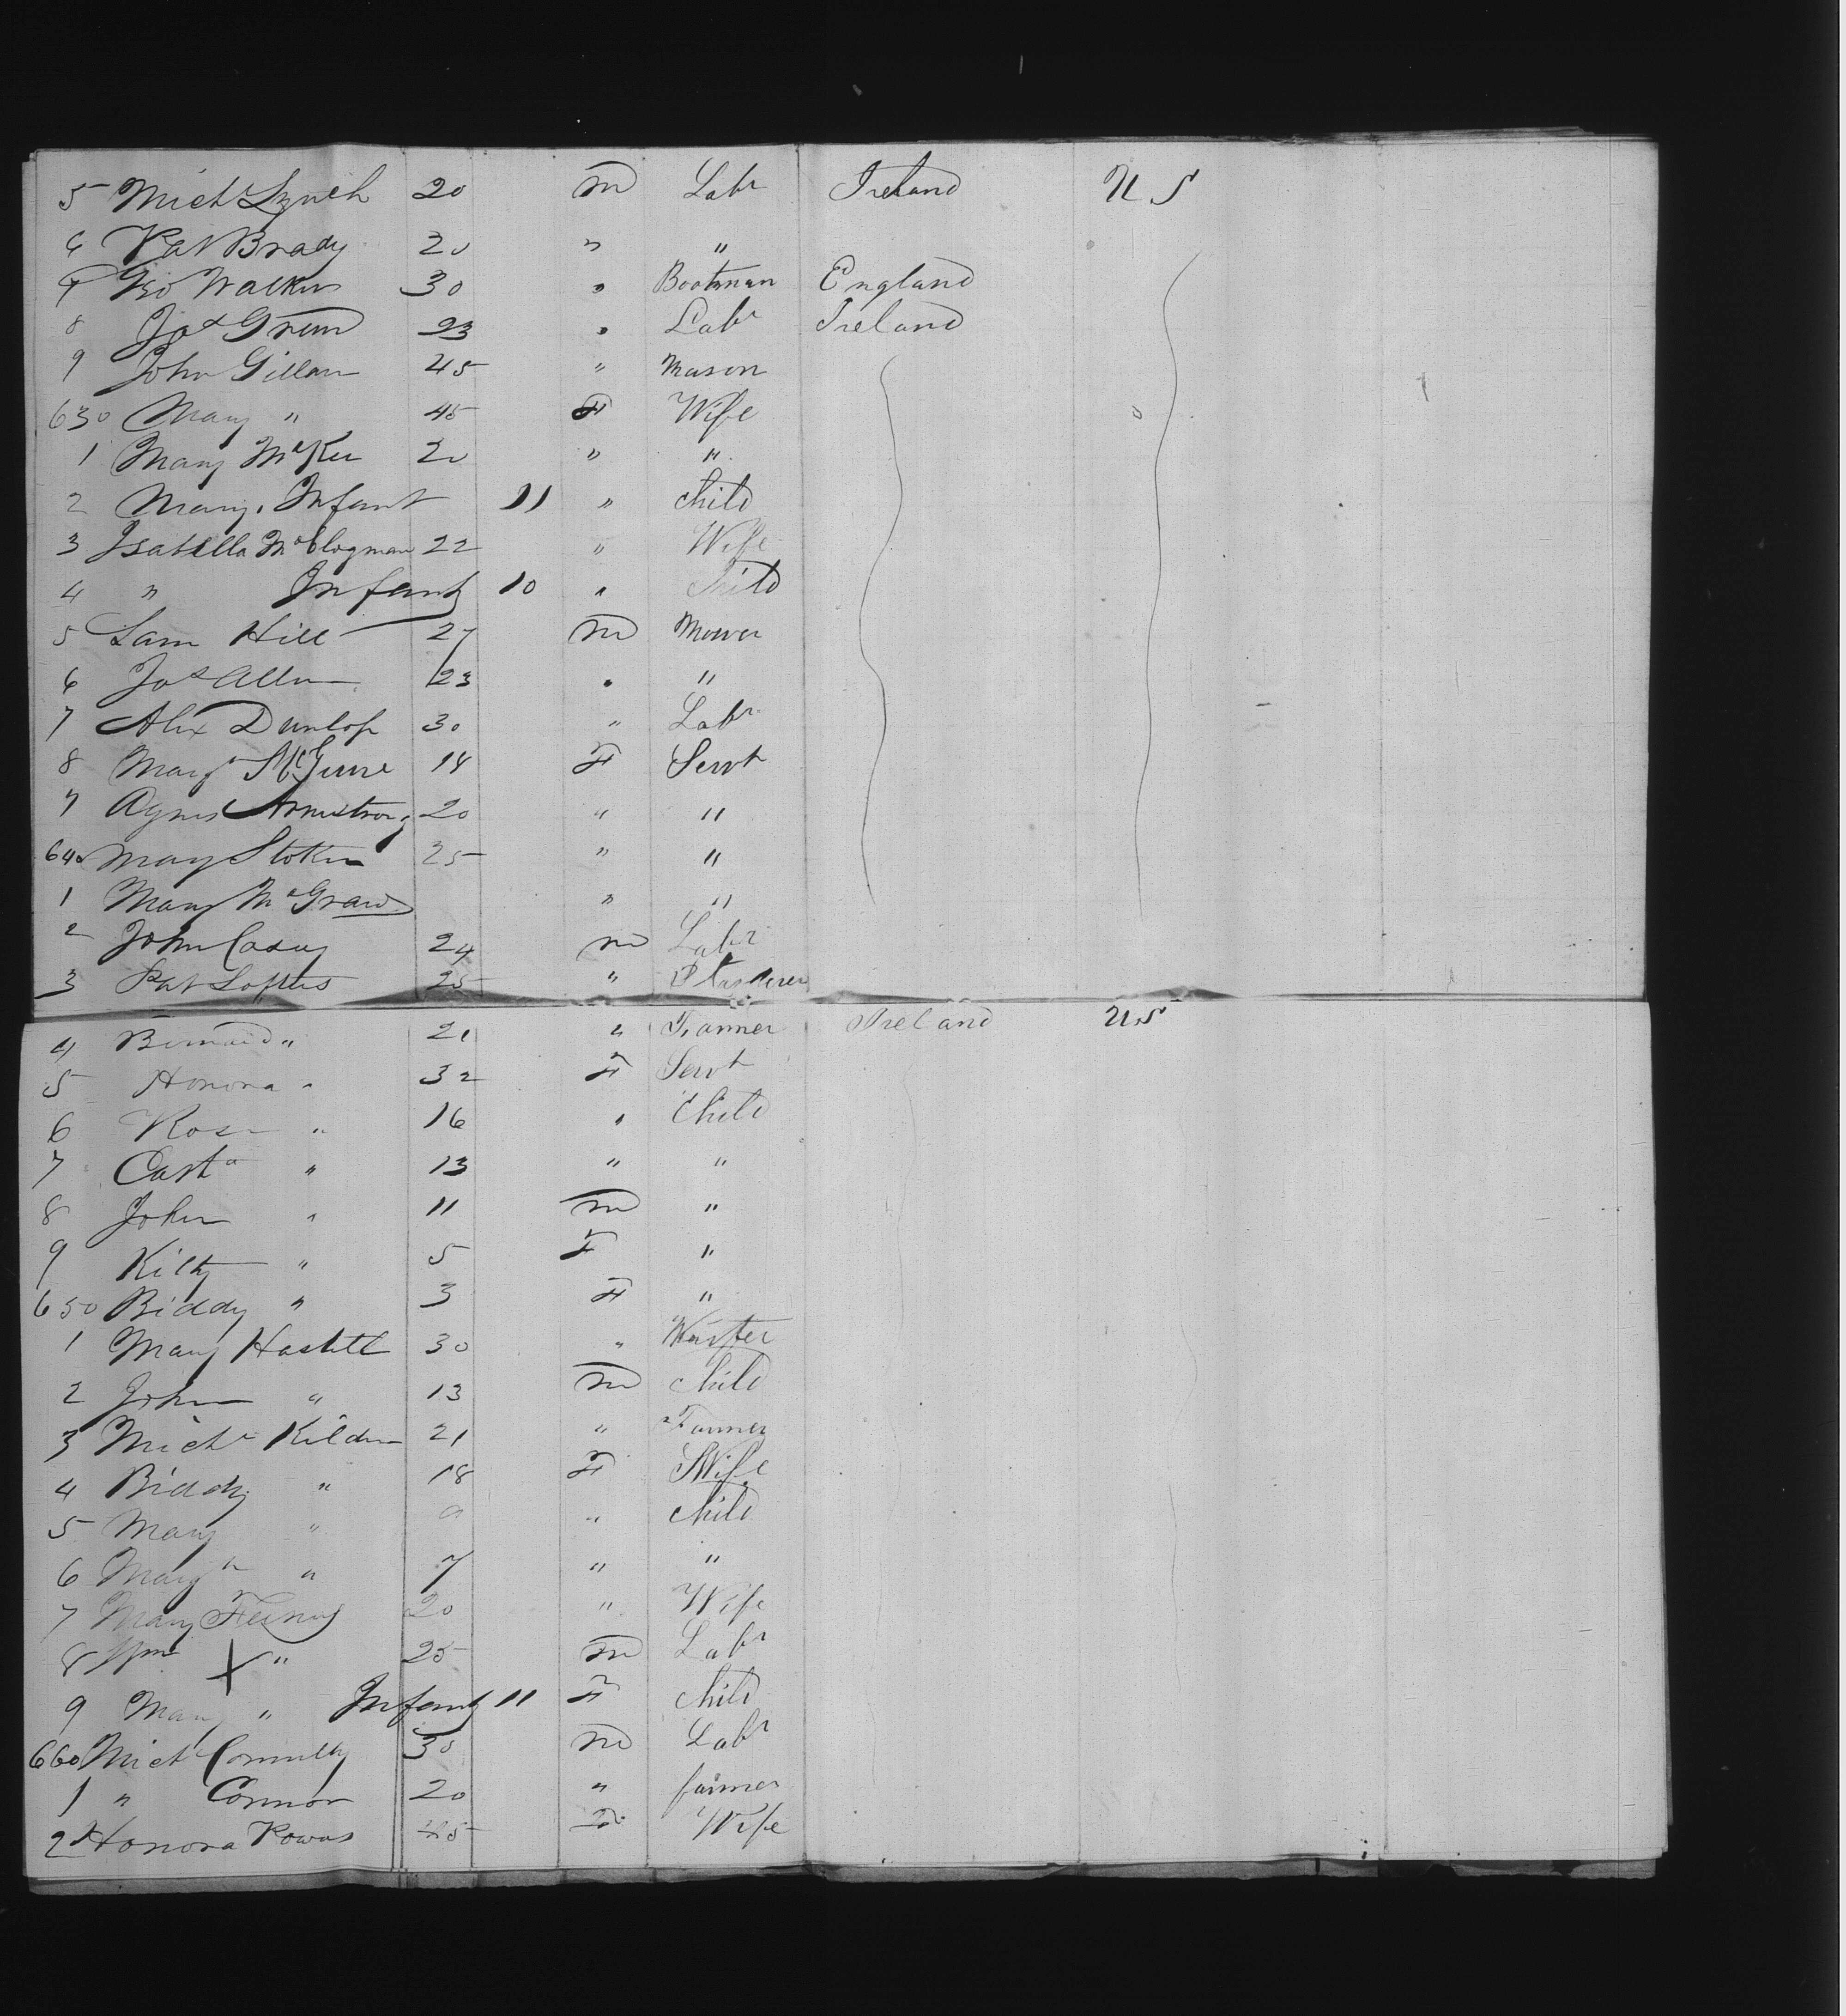 5 Mich Lynch 20 m Labr Ireland U S
6 Pat Brady 20 " "
7 Geo Walker 30 " Bootman England
8 Jas Green 23 " Labr Ireland
9 John Gillan 45 " Mason
630 Mary " 45 F Wife
1 Mary McKee 20 " "
2 Mary Infant 11 " child
3 Isabella McClogman 22 " Wife
4 " Infant 10 " Child
5 Sam Hill 27 m Mower
6 Jas Allen 23 " "
7 Alex Dunlop 30 " Labr
8 Margt 18 F Servt
9 Agnes Armstrong 20 " "
640 Mary Stoken 25 " "
1 Mary McGraw " "
2 John Casey 24 m Labr
3 Pat Loftus 25 " Plasterer
4 Bernard " 21 " Farmer Ireland U.S
5 Honora " 32 F Servt
6 Rose " 16 " Child
7 Cath " 13 " "
8 John " 11 m "
9 Kitty " 5 F "
650 Biddy " 3 F "
1 Mary Haslett 30 "
2 John " 13 m child
3 Michl 21 " Farmer
4 Biddy " 18 F Wife
5 Mary " 9 " child
6 Margt " 7 " "
7 Mary 20 " Wife
8 Wm X " 25 m Labr
9 Mary " Infant 11 F child
660 Michl Connolly 30 m Labr
1 " Connor 20 " farmer
2 Honora Powers 45 F Wife